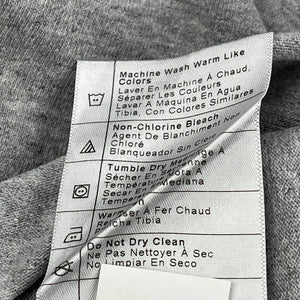 Machine Wash Warm Like
Colors
Laver En Machine À Chaud,
Séparer Les Couleurs
Lavar A Máquina En Agua
Tibia, Con Colores Similares
Non-Chlorine Bleach
Agent De Blanchiment Non
Chloré
Blanqueador Sin
Tumble Dry
Sécher En
Température
Secar En
Mediana
À Fer Chaud
Tibia
Do Not Dry Clean
Ne Pas Nettoyer À Sec
No Limpiar En Seco